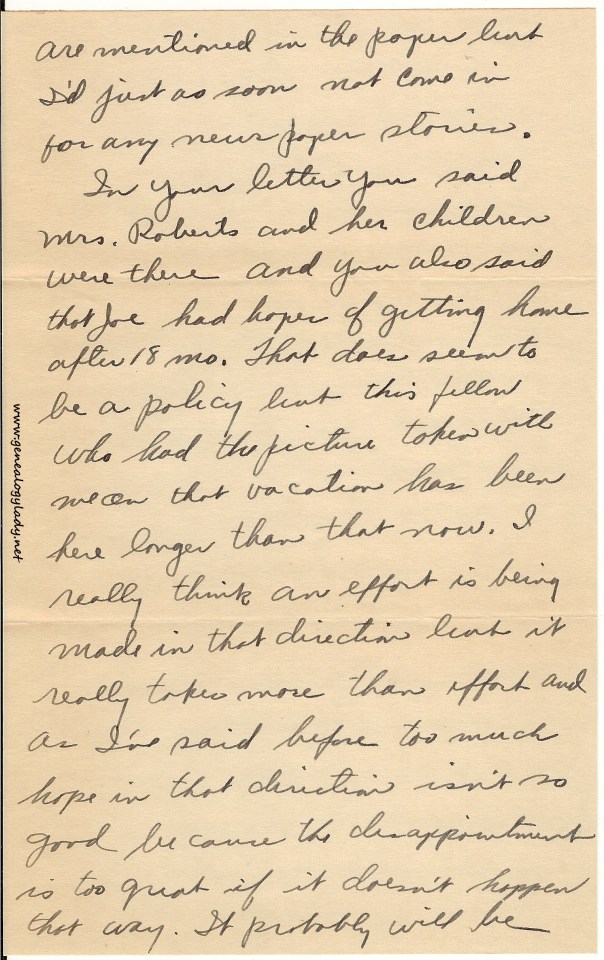 are mentioned in the paper but
I'd just as soon not come in
for any news paper stories.
In your letter you said
Mrs. Roberts and her children
were there and you also said
that Joe had hopes of getting home
after 18 mo. That does seem to
be a policy but this fellow
who had the picture taken with
me on that vacation has been
here longer than that now. I
really think an effort is being
made in that direction but it
really takes more than effort and
as I've said before too much
hope in that direction isn't so
good because the disappointment
is too great if it doesn't happen
that way. It probably will be
www.genealogylady.net